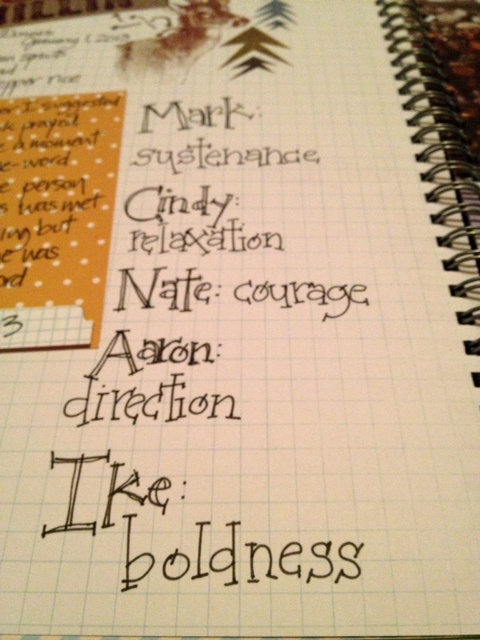 January 1, 2013
rice
I suggested
prayed
a moment
person
was met
but
was
3
Mark:
sustenance
Cindy:
relaxation
Nate: courage
Aaron:
direction
Ike:
boldness